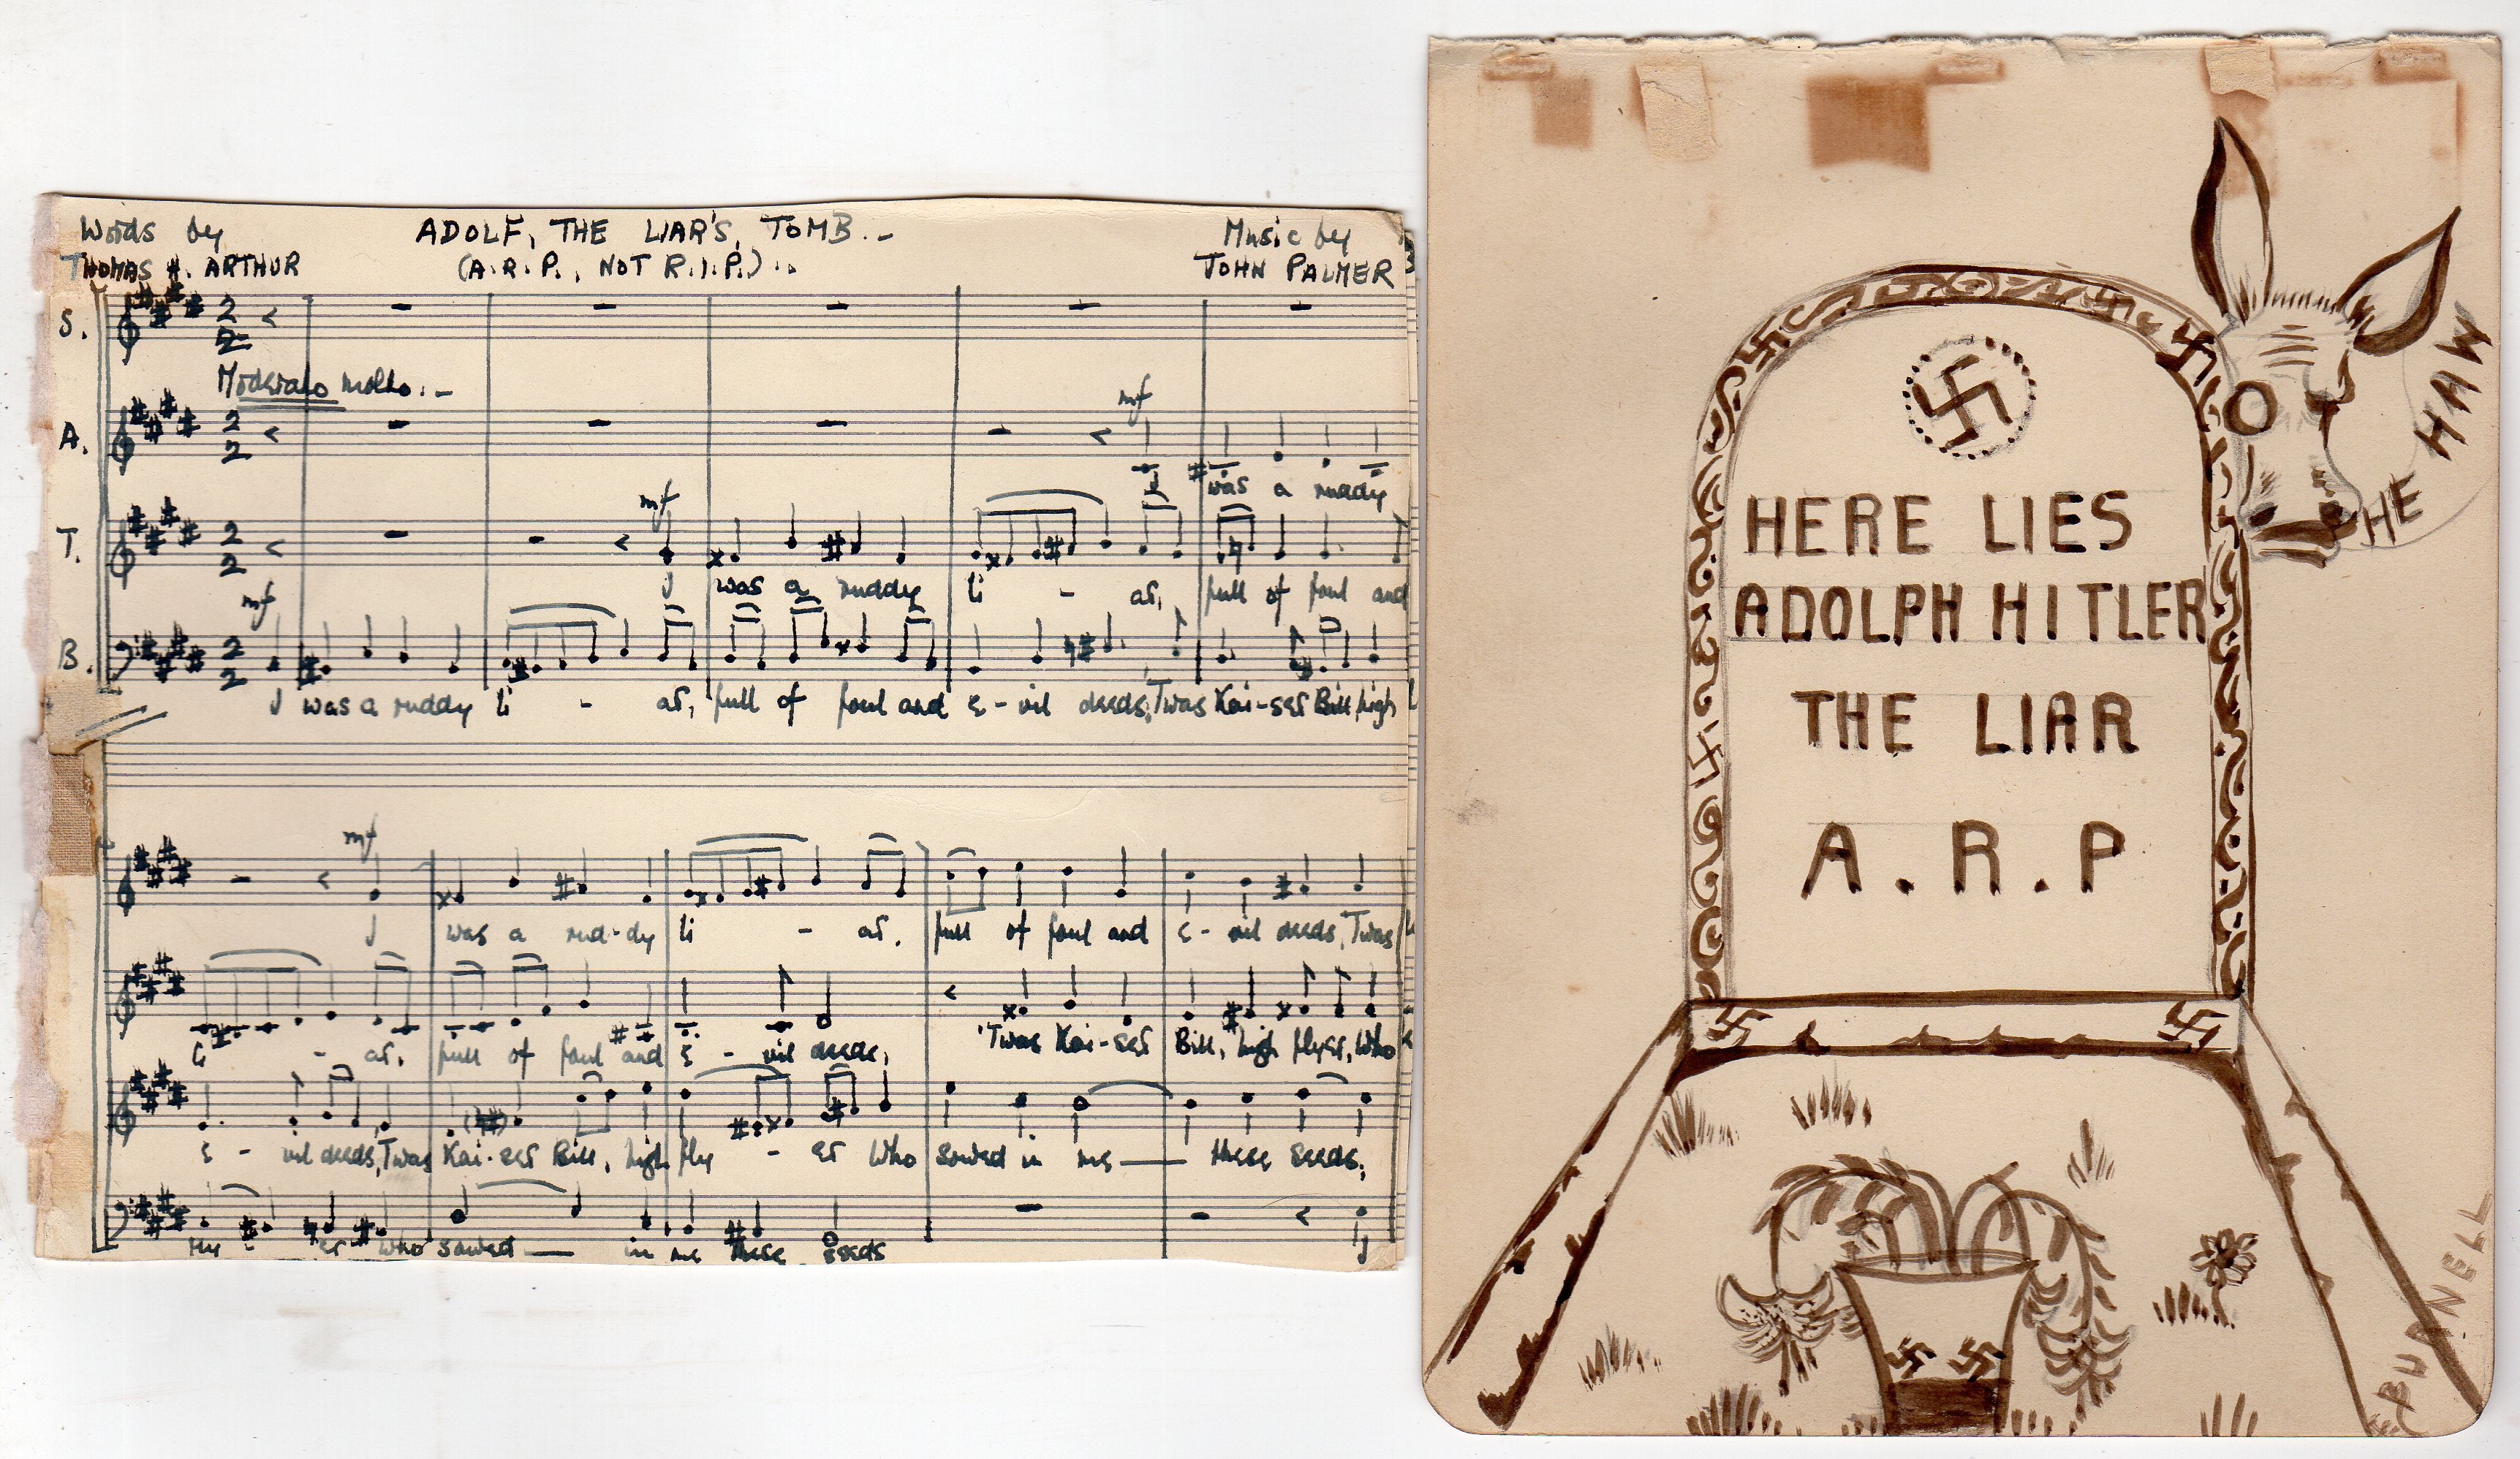 Words by
THOMAS H. ARTHUR
ADOLF, THE LIAR'S, TOMB.-
(A.R.P., NOT R.I.P.)..
Music by
JOHN PALMER
S.
2
2
Moderato molto.-
A.
2
2
mf
I was a ruddy
T.
2
2
mf
I was a ruddy li - ar, full of foul and
B.
2
2
mf
I was a ruddy li - ar, full of foul and e-vil deeds, 'Twas Kai-ser Bill, high
mf
I was a rud-dy li - ar. full of foul and e-vil deeds, Twas
li - ar. full of foul and e - vil deeds, 'Twas Kai-ser Bill, high flyer, Who
e - vil deeds, Twas Kai-ser Bill, high fly - er Who sowed in me — these seeds.
fly - er who sowed — in me these seeds I
HEE HAW
HERE LIES
ADOLPH HITLER
THE LIAR
A.R.P